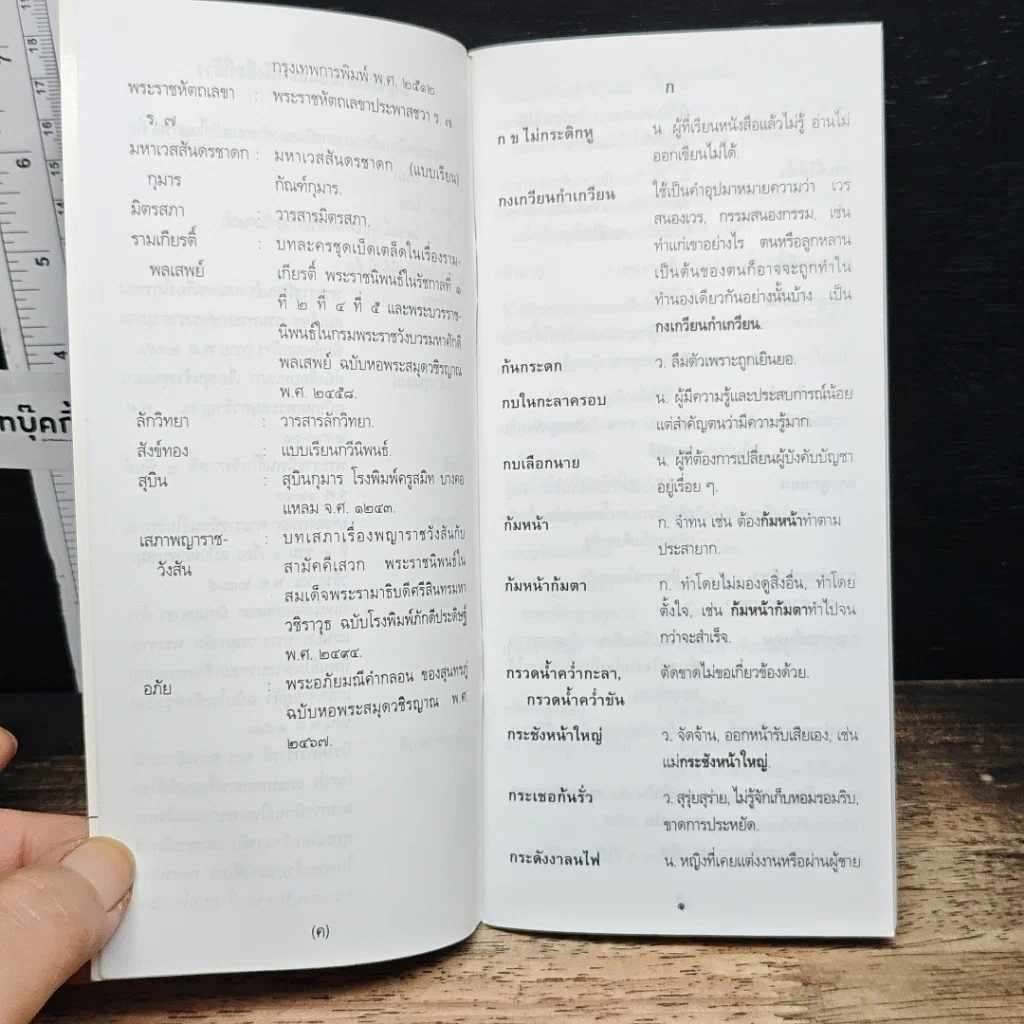 กรุงเทพการพิมพ์ พ.ศ. ๒๕๑๒
พระราชหัตถเลขา : พระราชหัตถเลขาประพาสชวา ร. ๗
ร. ๗
มหาเวสสันดรชาดก : มหาเวสสันดรชาดก (แบบเรียน)
กุมาร กัณฑ์กุมาร.
มิตรสภา : วารสารมิตรสภา.
รามเกียรติ์ : บทละครชุดเบ็ดเตล็ดในเรื่องราม-
พลเสพย์ เกียรติ์ พระราชนิพนธ์ในรัชกาลที่ ๑
ที่ ๒ ที่ ๔ ที่ ๕ และพระบวรราช-
นิพนธ์ในกรมพระราชวังบวรมหาศักดิ
พลเสพย์ ฉบับหอพระสมุดวชิรญาณ
พ.ศ. ๒๔๕๘.
ลักวิทยา : วารสารลักวิทยา.
สังข์ทอง : แบบเรียนกวีนิพนธ์.
สุบิน : สุบินกุมาร โรงพิมพ์ครูสมิท บางคอ
แหลม จ.ศ. ๑๒๔๓.
เสภาพญาราช- : บทเสภาเรื่องพญาราชวังสันกับ
วังสัน สามัคคีเสวก พระราชนิพนธ์ใน
สมเด็จพระรามาธิบดีศรีสินทรมหา
วชิราวุธ ฉบับโรงพิมพ์ภักดีประดิษฐ์
พ.ศ. ๒๔๙๔.
อภัย : พระอภัยมณีคำกลอน ของสุนทรภู่
ฉบับหอพระสมุดวชิรญาณ พ.ศ.
๒๔๖๗.
(ค)
ก
ก ข ไม่กระดิกหู น. ผู้ที่เรียนหนังสือแล้วไม่รู้ อ่านไม่
ออกเขียนไม่ได้.
กงเกวียนกำเกวียน ใช้เป็นคำอุปมาหมายความว่า เวร
สนองเวร, กรรมสนองกรรม, เช่น
ทำแก่เขาอย่างไร ตนหรือลูกหลาน
เป็นต้นของตนก็อาจจะถูกทำใน
ทำนองเดียวกันอย่างนั้นบ้าง เป็น
กงเกวียนกำเกวียน.
ก้นกระดก ว. ลืมตัวเพราะถูกเยินยอ.
กบในกะลาครอบ น. ผู้มีความรู้และประสบการณ์น้อย
แต่สำคัญตนว่ามีความรู้มาก.
กบเลือกนาย น. ผู้ที่ต้องการเปลี่ยนผู้บังคับบัญชา
อยู่เรื่อย ๆ.
ก้มหน้า ก. จำทน เช่น ต้องก้มหน้าทำตาม
ประสายาก.
ก้มหน้าก้มตา ก. ทำโดยไม่มองดูสิ่งอื่น, ทำโดย
ตั้งใจ, เช่น ก้มหน้าก้มตาทำไปจน
กว่าจะสำเร็จ.
กรวดน้ำคว่ำกะลา, ตัดขาดไม่ขอเกี่ยวข้องด้วย.
กรวดน้ำคว่ำขัน
กระชังหน้าใหญ่ ว. จัดจ้าน, ออกหน้ารับเสียเอง, เช่น
แม่กระชังหน้าใหญ่.
กระเชอก้นรั่ว ว. สุรุ่ยสุร่าย, ไม่รู้จักเก็บหอมรอมริบ,
ขาดการประหยัด.
กระดังงาลนไฟ น. หญิงที่เคยแต่งงานหรือผ่านผู้ชาย
๑